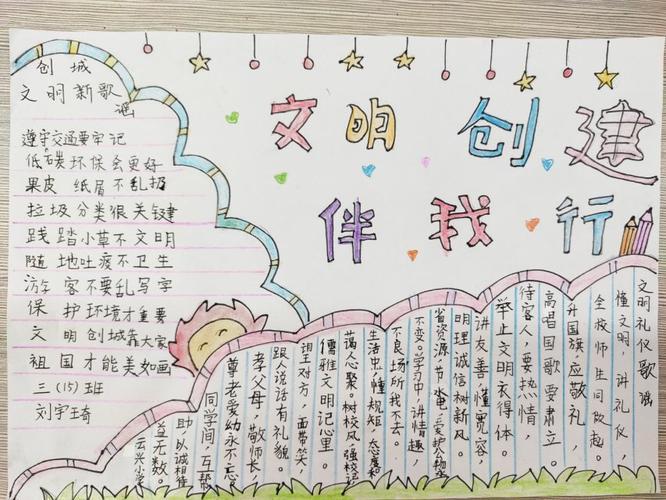 文明创建
伴我行
创城
文明新歌
谣
遵守交通要牢记
低碳环保会更好
果皮纸屑不乱扔
垃圾分类很关键
践踏小草不文明
随地吐痰不卫生
游客不要乱写字
保护环境才重要
文明创城靠大家
祖国才能美如画
三(15)班
刘宇琦
文明礼仪歌
懂文明，讲礼仪，
全校师生同改起。
升国旗，应敬礼
高唱国歌要肃立。
待客人，要热情，
举止文明衣得体。
讲友善，懂宽容，
明理诚信树新风。
省资源，节水电，爱护公物坚
不变。学习中，讲情趣，
不良场所我不去。
生活出，懂规矩，态度和
蔼人心聚。树校风，强校记
儒雅文明记心里。
对方，面带笑，
跟人说话有礼貌。
孝父母，敬师长，
尊老爱幼永不忘
同学间，互帮
助，以诚相待
尊无数。
云兴小学